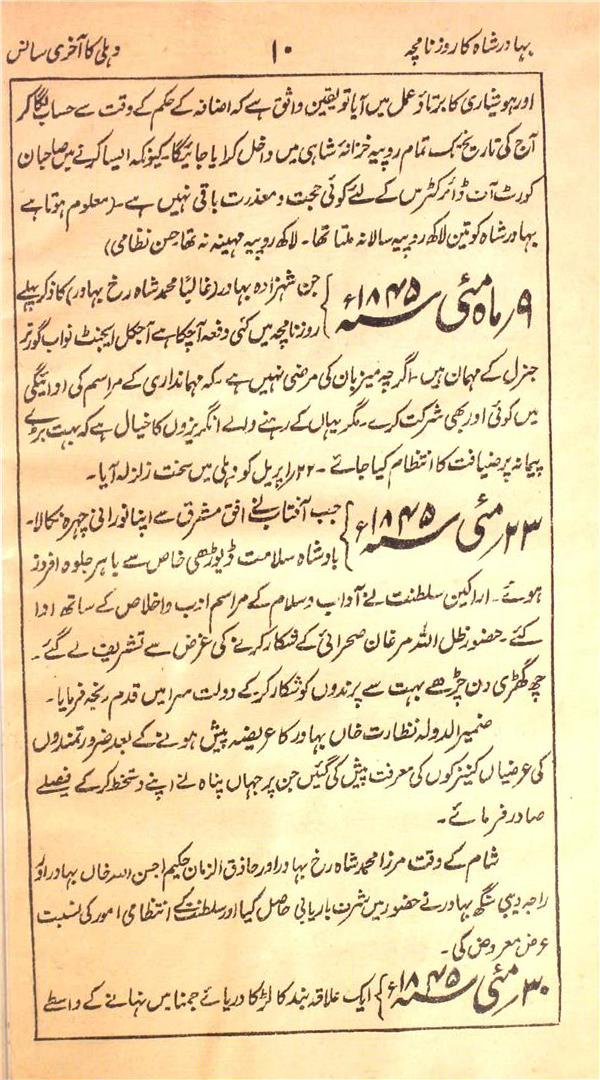 بہادر شاہ کا روزنامچہ ۱۰ دہلی کا آخری سانس
اور ہوشیاری کا برتاؤ عمل میں آیا تو یقین واثق ہے کہ اضافہ کے حکم کے وقت سے حساب لگا کر
آج کی تاریخ تک تمام روپیہ خزانۂ شاہی میں داخل کرایا جائیگا۔ کیونکہ ایسا کرنے میں صاحبان
کورٹ آف ڈائرکٹرس کے لئے کوئی حجت و معذرت باقی نہیں ہے۔ (معلوم ہوتا ہے
بہادر شاہ کو تین لاکھ روپیہ سالانہ ملتا تھا۔ لاکھ روپیہ مہینہ نہ تھا حسن نظامی)
۹ر ماہ مئی سنہ ۱۸۴۵ء } جن شہزادہ بہادر (غالبًا محمد شاہ رخ بہادر) کا ذکر پہلے
روزنامچہ میں کئی دفعہ آچکا ہے آجکل ایجنٹ نواب گورنر
جنرل کے مہمان ہیں۔ اگرچہ میزبان کی مرضی نہیں ہے۔ کہ مہمانداری کے مراسم کی ادائیگی
میں کوئی اور بھی شرکت کرے۔ مگر یہاں کے رہنے والے انگریزوں کا خیال ہے کہ بہت بڑے
پیمانہ پر ضیافت کا انتظام کیا جائے۔ ۲۲ر اپریل کو دہلی میں سخت زلزلہ آیا۔
۲۳ر مئی سنہ ۱۸۴۵ء } جب آفتاب نے افق مشرق سے اپنا نورانی چہرہ نکالا۔
بادشاہ سلامت ڈیوڑھی خاص سے باہر جلوہ افروز
ہوئے۔ اراکین سلطنت نے آداب و سلام کے مراسم ادب و اخلاص کے ساتھ ادا
کئے۔ حضور ظل اللہ مرغان صحرائی کے شکار کرنے کی غرض سے تشریف لے گئے۔
چھ گھڑی دن چڑھے بہت سے پرندوں کو شکار کر کے دولت سرا میں قدم رنجہ فرمایا۔
ضمیر الدولہ نظارت خاں بہادر کا عریضہ پیش ہونے کے بعد ضرورتمندوں
کی عرضیاں کنیزکوں کی معرفت پیش کی گئیں جن پر جہاں پناہ نے اپنے دستخط کر کے فیصلے
صادر فرمائے۔
شام کے وقت مرزا محمد شاہ رخ بہادر اور حاذق الزمان حکیم احسن اللہ خاں بہادر اور
راجہ دیبی سنگھ بہادر نے حضور میں شرف باریابی حاصل کیا اور سلطنت کے انتظامی امور کی نسبت
عرض معروض کی۔
۳۰ر مئی سنہ ۱۸۴۵ء } ایک علاقہ بند کا لڑکا دریائے جمنا میں نہانے کے واسطے